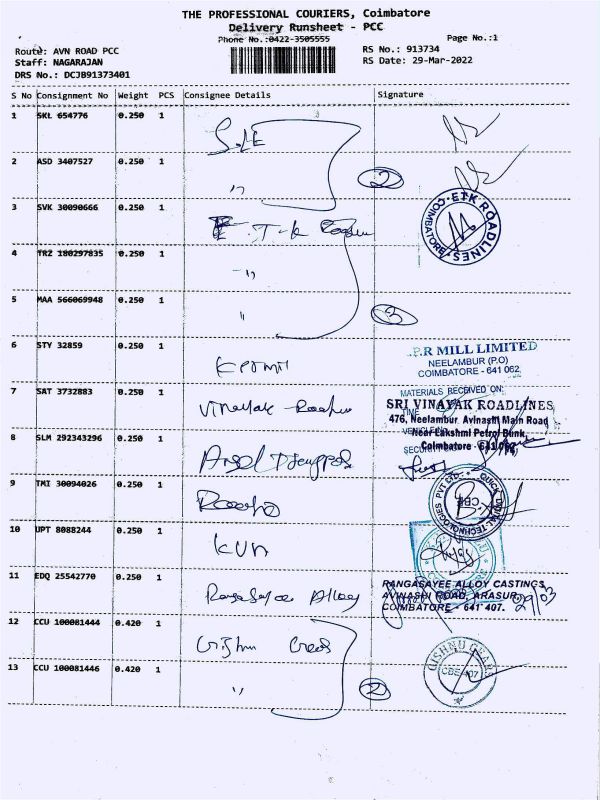 THE PROFESSIONAL COURIERS, Coimbatore
Delivery Runsheet - PCC
Phone No.:0422-3505555
Page No.:1
Route: AVN ROAD PCC
RS No.: 913734
Staff: NAGARAJAN
RS Date: 29-Mar-2022
DRS No.: DCJB91373401
S No Consignment No Weight PCS Consignee Details Signature
1 SKL 654776 0.250 1
2 ASD 3407527 0.250 1 〃 2
3 SVK 30090666 0.250 1 E.T.K
ETK ROADLINES COIMBATORE
4 TRZ 180297835 0.250 1 -〃
5 MAA 566069948 0.250 1 〃 3
6 STY 32859 0.250 1 KPRmill
.P.R MILL LIMITED
NEELAMBUR (P.O)
COIMBATORE - 641 062
MATERIALS RECEIVED ON:
7 SAT 3732883 0.250 1 Vinayak
SRI VINAYAK ROADLINES
TIME
476, Neelambur, Avinashi Main Road
Near Lakshmi Petrol Bunk,
Coimbatore - 641 062
8 SLM 292343296 0.250 1
9 TMI 30094026 0.250 1
QUICK DIGITAL TECHNOLOGIES PVT LTD
CBE
10 UPT 8088244 0.250 1 KUN
11 EDQ 25542770 0.250 1 Rangasayee Alloy
RANGASAYEE ALLOY CASTINGS
AVINASHI ROAD, ARASUR
COIMBATORE - 641 407.
29/03
12 CCU 100081444 0.420 1
13 CCU 100081446 0.420 1 〃 2